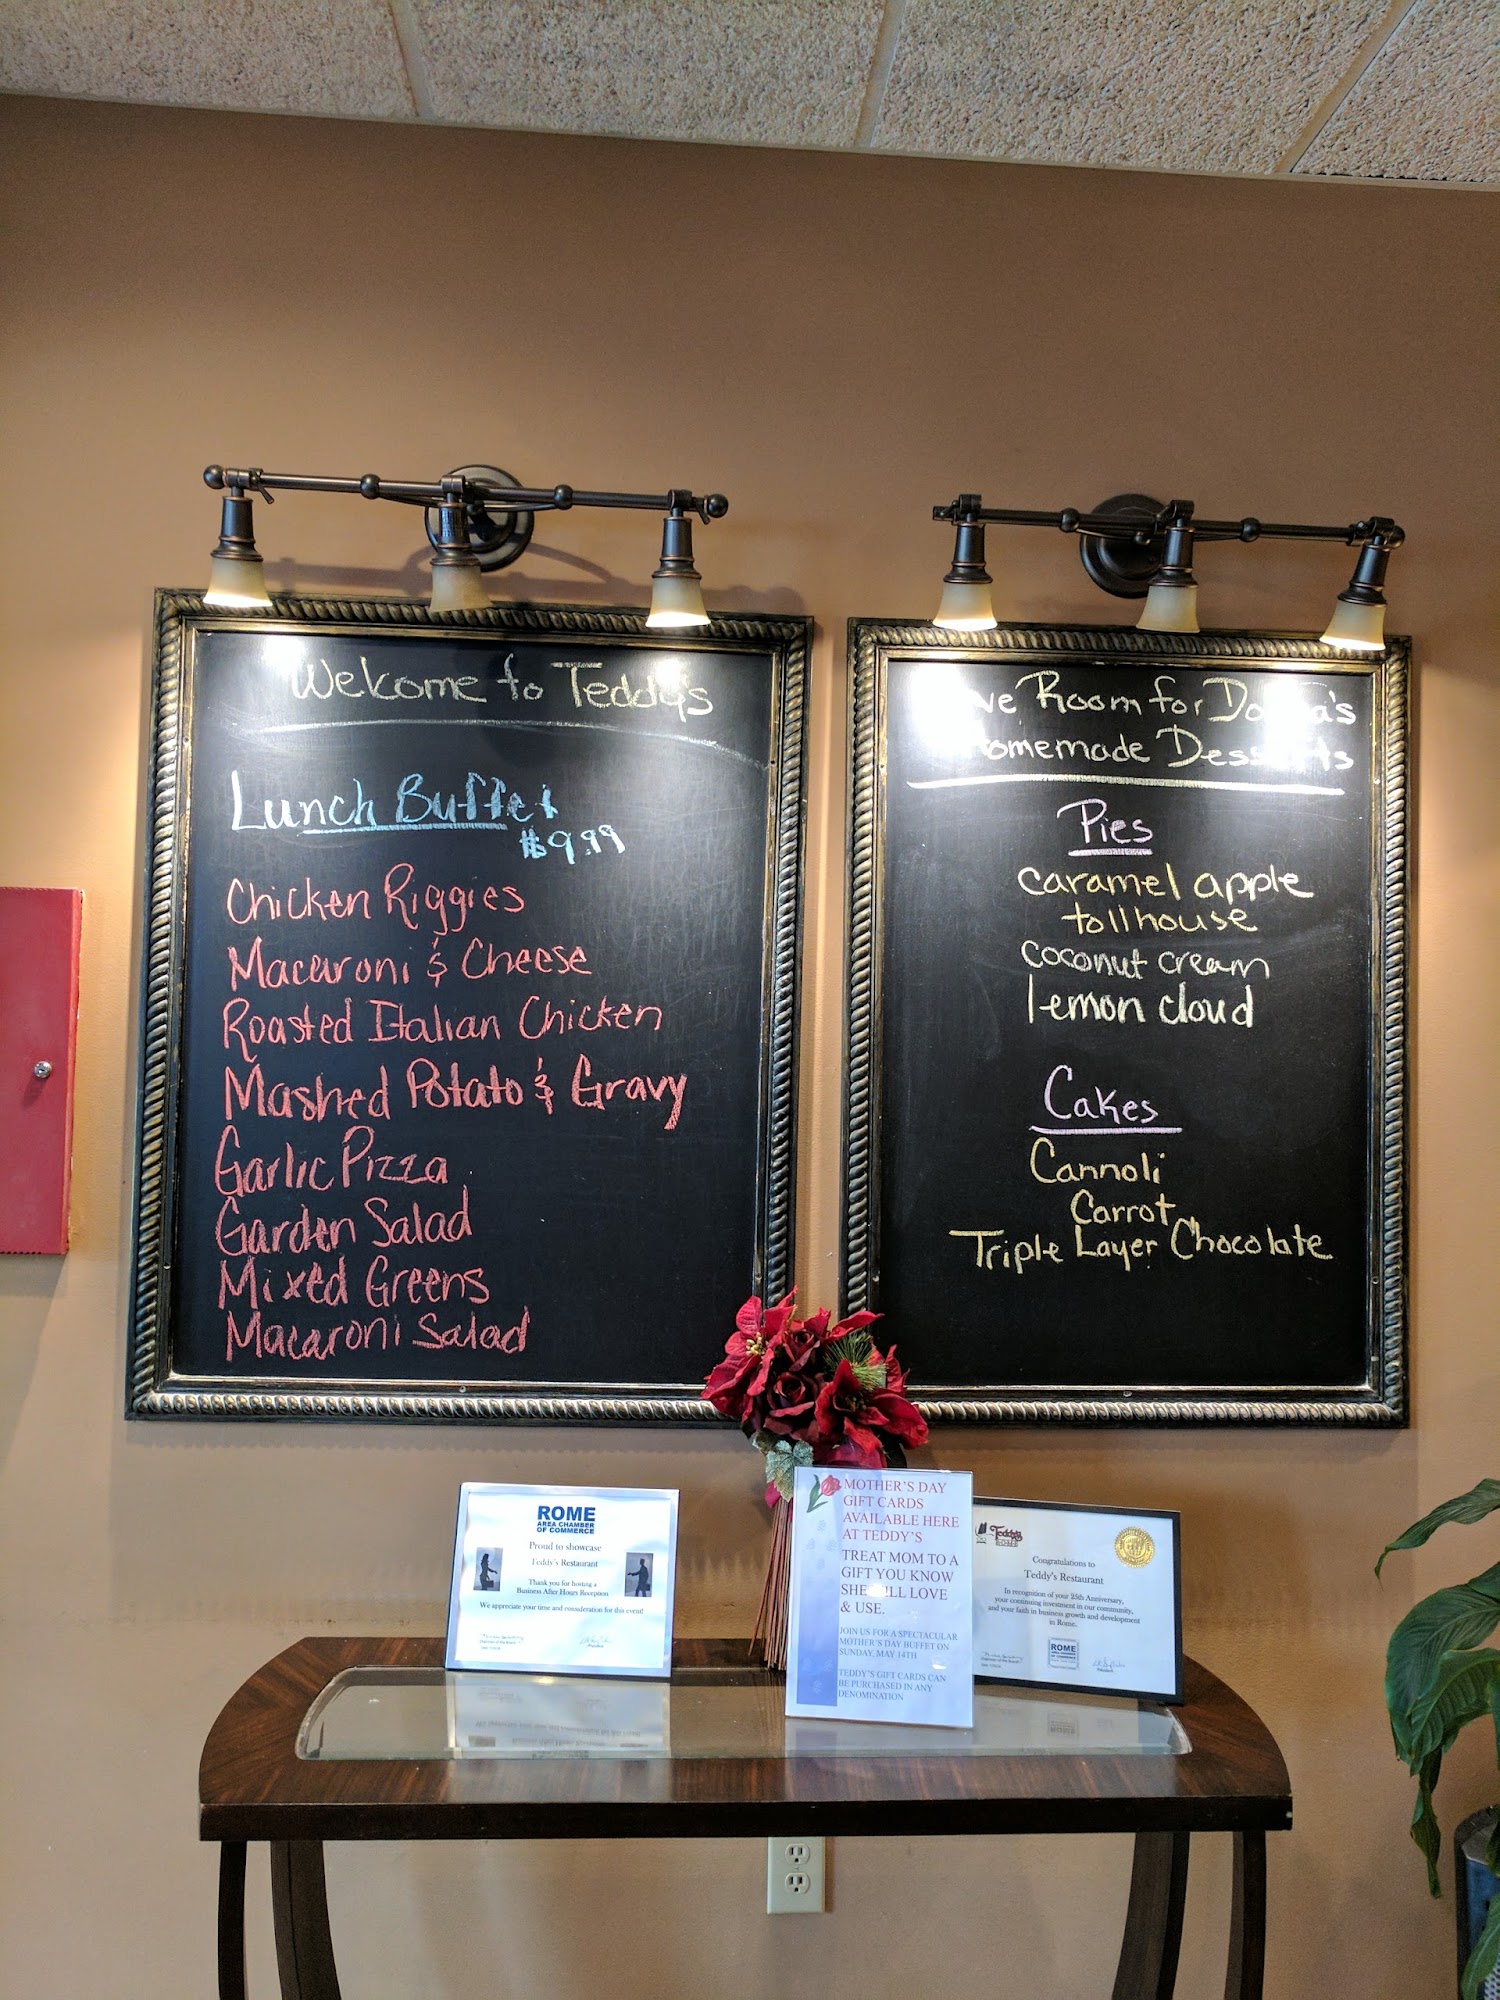 Welcome to Teddy's
Lunch Buffet
$9.99
Chicken Riggies
Macaroni & Cheese
Roasted Italian Chicken
Mashed Potato & Gravy
Garlic Pizza
Garden Salad
Mixed Greens
Macaroni Salad
Room for
Homemade Desserts
Pies
caramel apple
tollhouse
coconut cream
lemon cloud
Cakes
Cannoli
Carrot
Triple Layer Chocolate
ROME
AREA CHAMBER
OF COMMERCE
Proud to showcase
Teddy's Restaurant
Thank you for hosting a
Business After Hours Reception
We appreciate your time and consideration for this event!
MOTHER'S DAY
GIFT CARDS
AVAILABLE HERE
AT TEDDY'S
TREAT MOM TO A
GIFT YOU KNOW
SHE WILL LOVE
& USE.
JOIN US FOR A SPECTACULAR
MOTHER'S DAY BUFFET ON
SUNDAY, MAY 14TH
TEDDY'S GIFT CARDS CAN
BE PURCHASED IN ANY
DENOMINATION
Teddy's
ROME
Congratulations to
Teddy's Restaurant
In recognition of your 25th Anniversary,
your continuing investment in our community,
and your faith in business growth and development
in Rome.
ROME